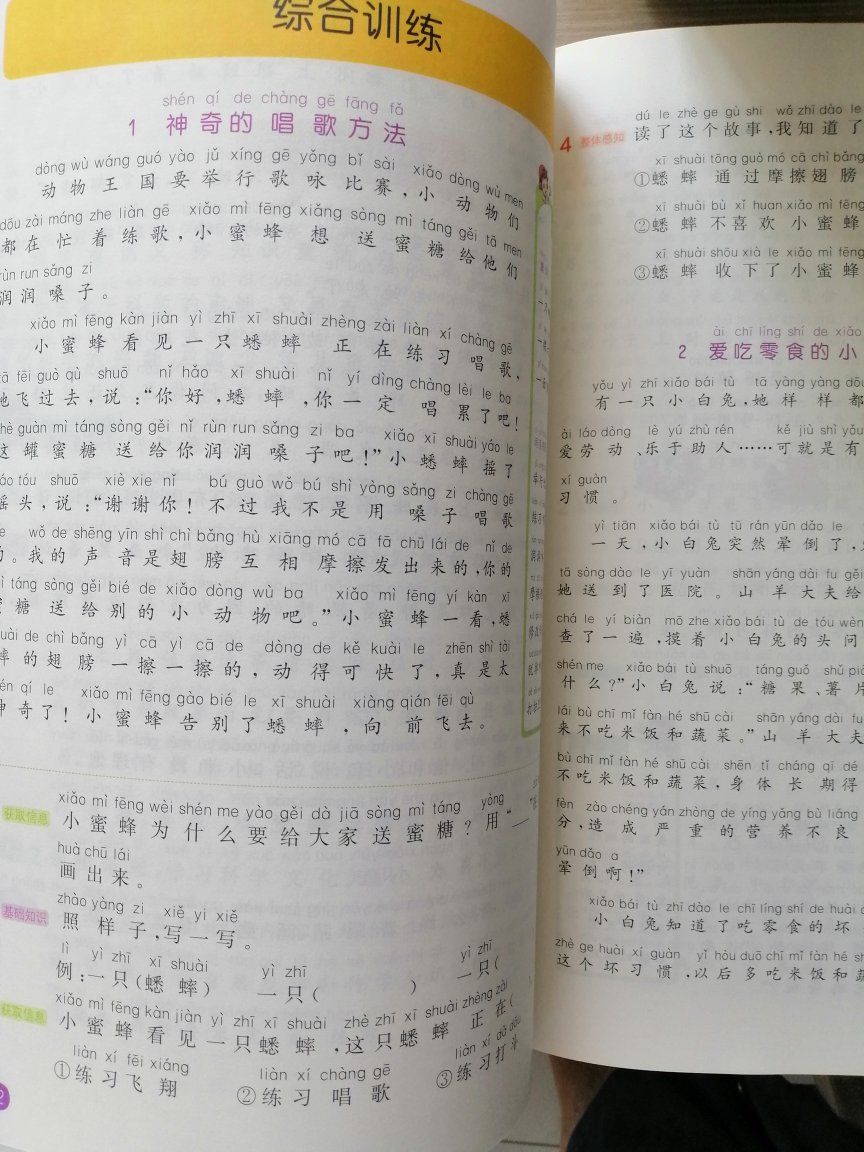 综合训练
shén qí de chàng gē fāng fǎ
1 神奇的唱歌方法
dòng wù wáng guó yào jǔ xíng gē yǒng bǐ sài xiǎo dòng wù men
动物王国要举行歌咏比赛,小动物们
dōu zài máng zhe liàn gē xiǎo mì fēng xiǎng sòng mì táng gěi tā men
都在忙着练歌,小蜜蜂想送蜜糖给他们
rùn run sǎng zi
润润嗓子。
xiǎo mì fēng kàn jiàn yì zhī xī shuài zhèng zài liàn xí chàng gē
小蜜蜂看见一只蟋蟀正在练习唱歌,
tā fēi guò qù shuō nǐ hǎo xī shuài nǐ yí dìng chàng lèi le ba
她飞过去,说:“你好,蟋蟀,你一定唱累了吧!
zhè guàn mì táng sòng gěi nǐ rùn run sǎng zi ba xiǎo xī shuài yáo le
这罐蜜糖送给你润润嗓子吧!”小蟋蟀摇了
yáo tóu shuō xiè xie nǐ bú guò wǒ bú shì yòng sǎng zi chàng gē
摇头,说:“谢谢你!不过我不是用嗓子唱歌
wǒ de shēng yīn shì chì bǎng hù xiāng mó cā fā chū lái de nǐ de
的。我的声音是翅膀互相摩擦发出来的,你的
mì táng sòng gěi bié de xiǎo dòng wù ba xiǎo mì fēng yí kàn xī
蜜糖送给别的小动物吧。”小蜜蜂一看,蟋
shuài de chì bǎng yì cā yì cā de dòng de kě kuài le zhēn shì tài
蟀的翅膀一擦一擦的,动得可快了,真是太
shén qí le xiǎo mì fēng gào bié le xī shuài xiàng qián fēi qù
神奇了!小蜜蜂告别了蟋蟀,向前飞去。
xiǎo mì fēng wèi shén me yào gěi dà jiā sòng mì táng yòng
获取信息 小蜜蜂为什么要给大家送蜜糖?用“__”
huà chū lái
画出来。
zhào yàng zi xiě yi xiě
基础知识 照样子,写一写。
lì yì zhī xī shuài yì zhī yì zhī
例:一只(蟋蟀) 一只( ) 一只(
xiǎo mì fēng kàn jiàn yì zhī xī shuài zhè zhī xī shuài zhèng zài
获取信息 小蜜蜂看见一只蟋蟀,这只蟋蟀正在(
liàn xí fēi xiáng liàn xí chàng gē liàn xí dǎ dòu
①练习飞翔 ②练习唱歌 ③练习打斗
dú le zhè ge gù shi wǒ zhī dào le
4 整体感知 读了这个故事,我知道了
xī shuài tōng guò mó cā chì bǎng
①蟋蟀通过摩擦翅膀
xī shuài bù xǐ huan xiǎo mì fēng
②蟋蟀不喜欢小蜜蜂
xī shuài shōu xià le xiǎo mì fēng
③蟋蟀收下了小蜜蜂
ài chī líng shí de xiǎo
2 爱吃零食的小
yǒu yì zhī xiǎo bái tù tā yàng yàng dōu
有一只小白兔,她样样都
ài láo dòng lè yú zhù rén kě jiù shì yǒu
爱劳动、乐于助人……可就是有
xí guàn
习惯。
yì tiān xiǎo bái tù tū rán yūn dǎo le
一天,小白兔突然晕倒了,
tā sòng dào le yī yuàn shān yáng dài fu gěi
她送到了医院。山羊大夫给
chá le yí biàn mō zhe xiǎo bái tù de tóu wèn
查了一遍,摸着小白兔的头问
shén me xiǎo bái tù shuō táng guǒ shǔ piàn
什么?”小白兔说:“糖果、薯片
lái bù chī mǐ fàn hé shū cài shān yáng dài fu
来不吃米饭和蔬菜。”山羊大夫
bù chī mǐ fàn hé shū cài shēn tǐ cháng qī dé
不吃米饭和蔬菜,身体长期得
fèn zào chéng yán zhòng de yíng yǎng bù liáng
分,造成严重的营养不良
yūn dǎo a
晕倒啊!”
xiǎo bái tù zhī dào le chī líng shí de huài
小白兔知道了吃零食的坏
zhè ge huài xí guàn yǐ hòu duō chī mǐ fàn hé
这个坏习惯,以后多吃米饭和蔬